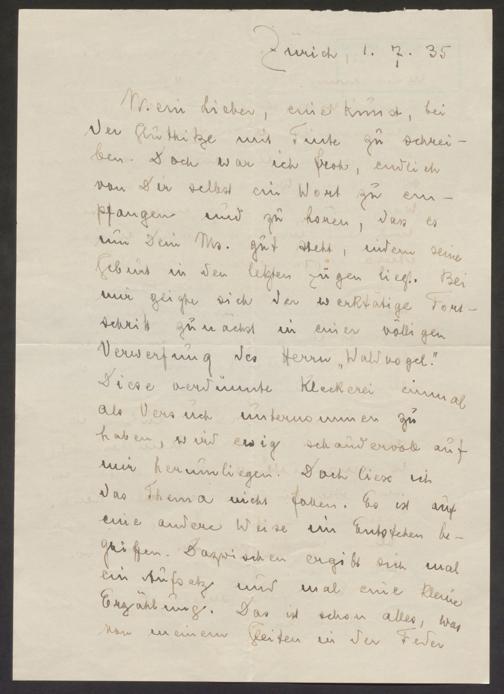 Zürich, 1. 7. 35
Mein Lieber, eine Kunst, bei
der Gluthitze mit Tinte zu schrei-
ben. Doch war ich froh, endlich
von Dir selbst ein Wort zu em-
pfangen und zu hören, dass es
um Dein Ms. gut steht, indem seine
Geburt in den letzten Zügen liegt. Bei
mir zeigte sich der werktätige Fort-
schritt zunächst in einer völligen
Verwerfung des Herrn „Waldvogel."
Diese verdünnte Kleckerei einmal
als Versuch unternommen zu
haben, wird ewig schaudervoll auf
mir herumliegen. Doch liess ich
das Thema nicht fallen. Es ist auf
eine andere Weise im Entstehen be-
griffen. Dazwischen ergibt sich mal
ein Aufsatz und mal eine kleine
Erzählung. Das ist schon alles, was
von meinem Gleiten in der Feder